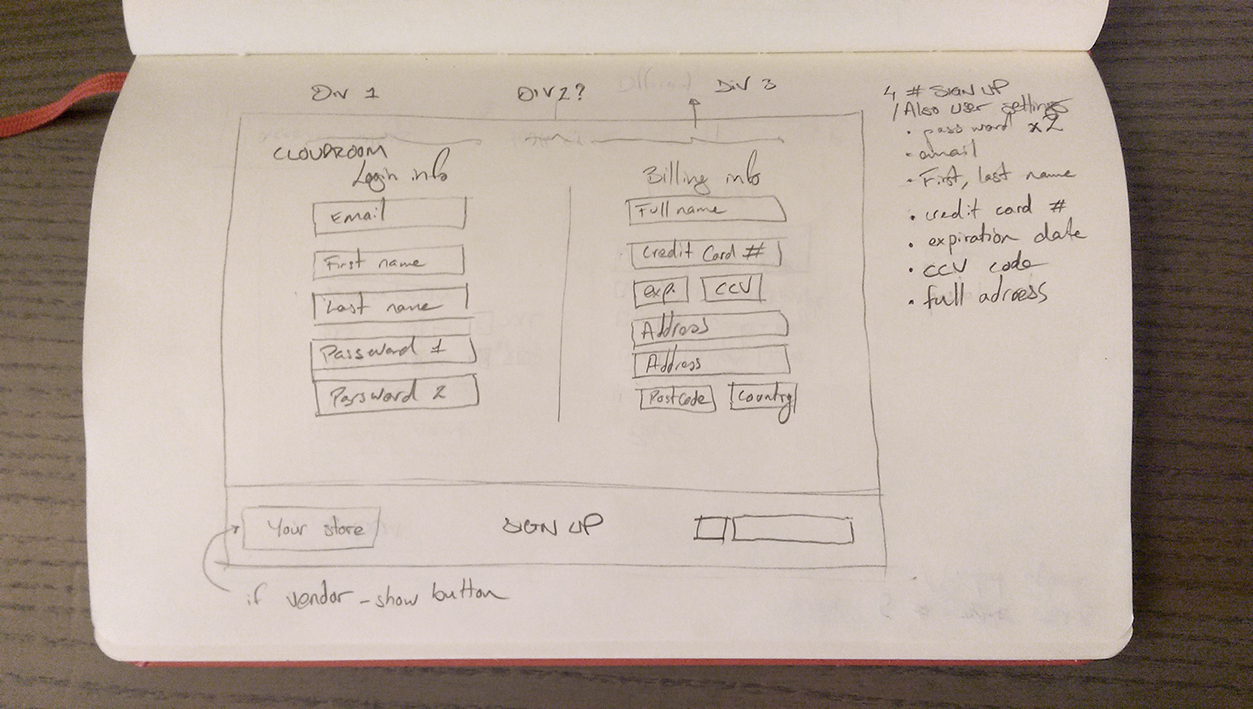 Div 1
Div 2?
Div 3
CLOUDROOM
Login info
Email
First name
Last name
Password 1
Password 2
Billing info
Full name
Credit Card #
exp.
CCV
Address
Address
Postcode
Country
Your store
SIGN UP
if vendor - show button
4 # SIGN UP
/Also user settings
• pass word x2
• email
• First, last name
• credit card #
• expiration date
• CCV code
• full adress